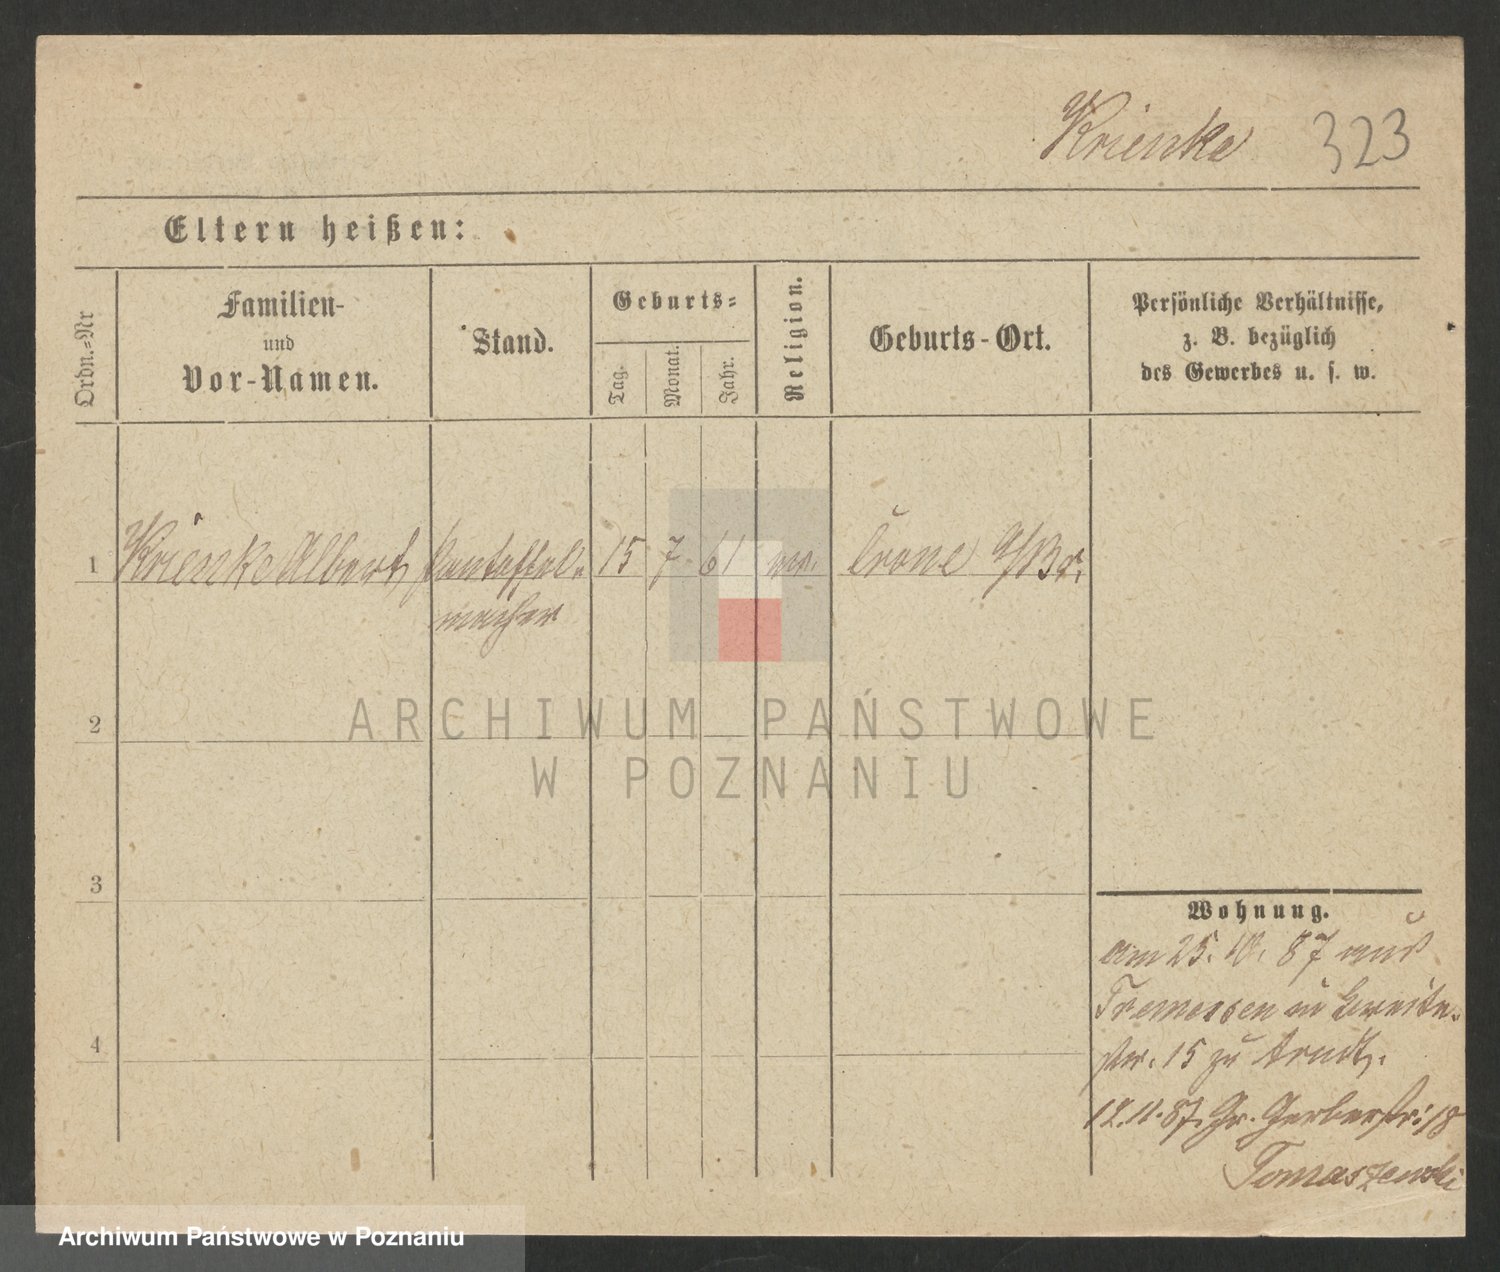 Krienke 323
Eltern heißen:
Ordn.=Nr
Familien-
und
Vor-Namen.
Stand.
Geburts=
Tag.
Monat.
Jahr.
Religion.
Geburts-Ort.
Persönliche Verhältnisse,
z. B. bezüglich
des Gewerbes u. s. w.
1 Krienke Albert Pantoffel- 15 7 61 Crone a/Br.
macher
2
3
4
ARCHIWUM PAŃSTWOWE
W POZNANIU
Wohnung.
am 25. 10. 87 aus
Tremessen in Breite-
str. 15 zu Arndt.
12.11.87. Gr. Gerberstr: 18
Tomaszewski
Archiwum Państwowe w Poznaniu